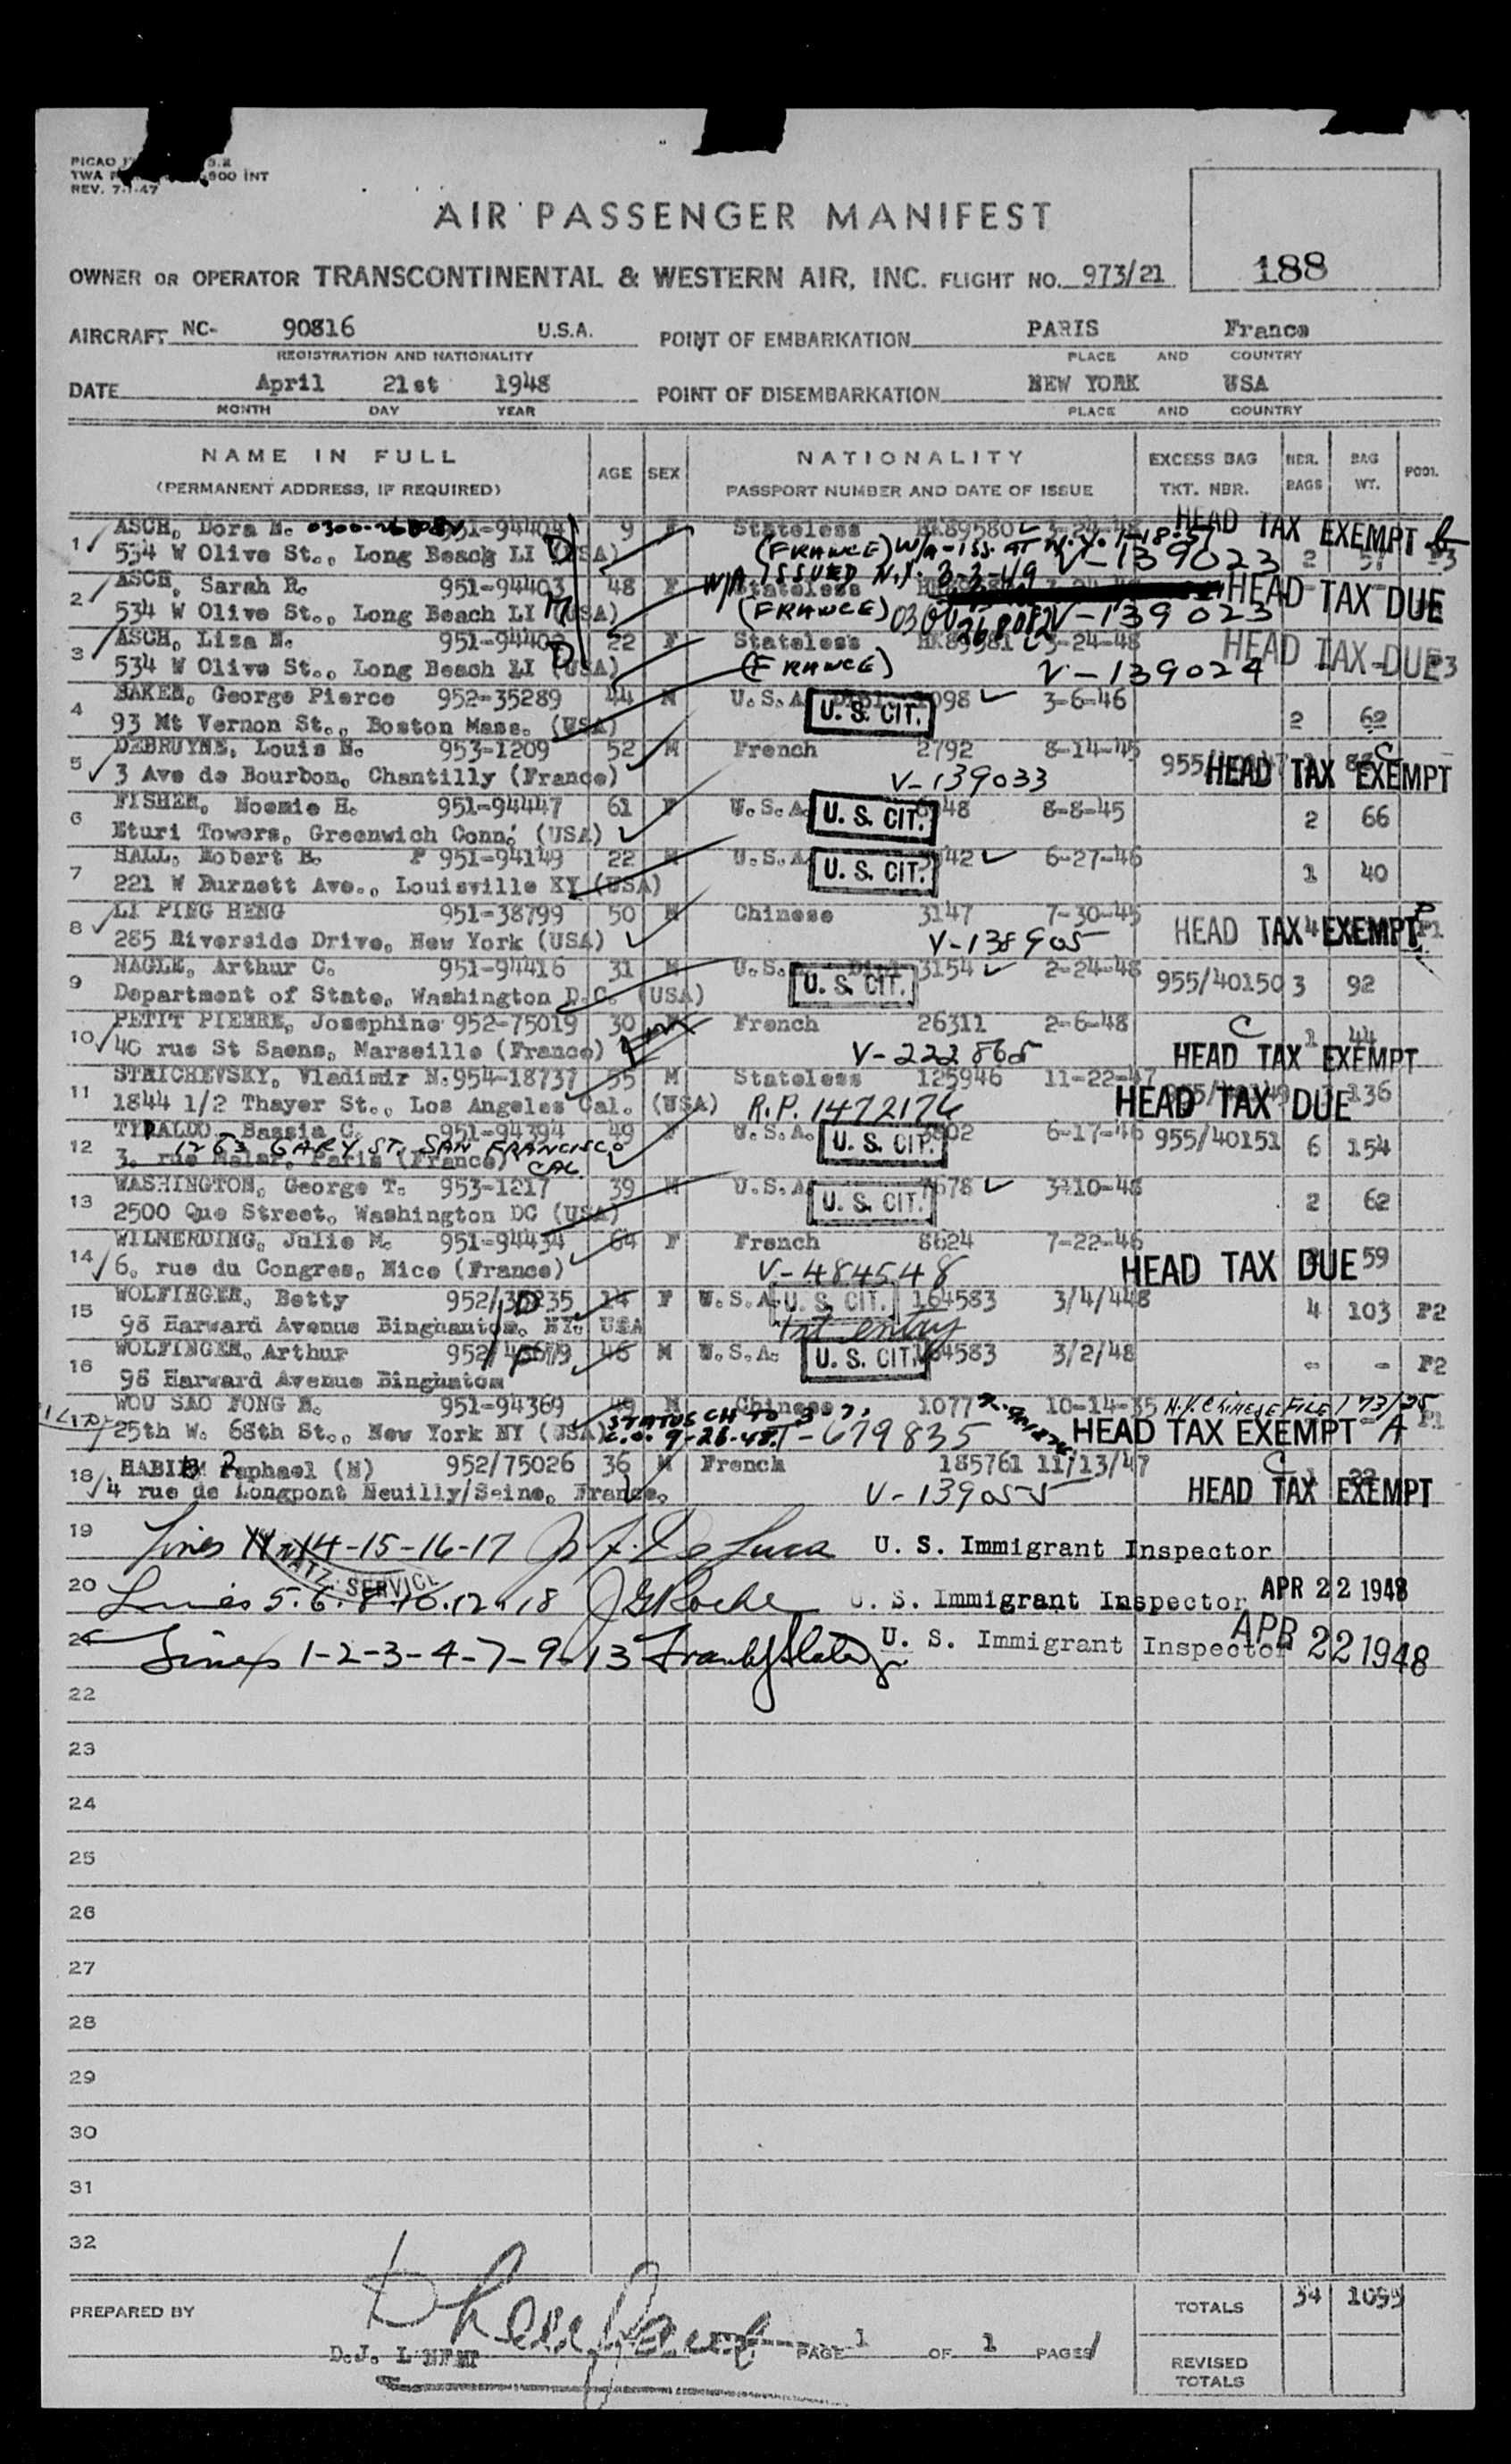 PICAO
TWA 900 INT
REV. 7-1-47
AIR PASSENGER MANIFEST
188
OWNER OR OPERATOR TRANSCONTINENTAL & WESTERN AIR, INC. FLIGHT NO. 973/21
AIRCRAFT NC- 90816 U.S.A. POINT OF EMBARKATION PARIS France
REGISTRATION AND NATIONALITY PLACE AND COUNTRY
DATE April 21st 1948 POINT OF DISEMBARKATION NEW YORK USA
MONTH DAY YEAR PLACE AND COUNTRY
NAME IN FULL AGE SEX NATIONALITY EXCESS BAG NBR. BAG POOL
(PERMANENT ADDRESS, IF REQUIRED) PASSPORT NUMBER AND DATE OF ISSUE TKT. NBR. BAGS WT.
1 ASCH, Dora N. 951-94404 9 F Stateless 89580 3-24-48 HEAD TAX EXEMPT
534 W Olive St., Long Beach LI (USA) (FRANCE) V-139023 2
2 ASCH, Sarah R. 951-94403 48 F Stateless W/A ISSUED N.Y. 3-3-49 HEAD TAX DUE
534 W Olive St., Long Beach LI (USA) (FRANCE) 0300 268082 V-139023
3 ASCH, Liza N. 951-94402 22 F Stateless 89581 3-24-48 HEAD TAX DUE
534 W Olive St., Long Beach LI (USA) (FRANCE) V-139024
4 BAKER, George Pierce 952-35289 44 M U.S.A. 098 3-6-46
93 Mt Vernon St., Boston Mass. (USA) U. S. CIT. 2 62
5 DEBRUYNE, Louis N. 953-1209 52 M French 2792 8-14-45
3 Ave de Bourbon, Chantilly (France) V-139033 HEAD TAX EXEMPT
6 FISHER, Noemie H. 951-94447 61 F U.S.A. 48 8-8-45
Eturi Towers, Greenwich Conn. (USA) U. S. CIT. 2 66
7 HALL, Robert B. P 951-94149 22 M U.S.A. 42 6-27-46
221 W Burnett Ave., Louisville KY (USA) U. S. CIT. 1 40
8 LI PING HENG 951-38799 50 M Chinese 3147 7-30-45
285 Riverside Drive, New York (USA) V-138905 HEAD TAX EXEMPT P1
9 NAGLE, Arthur C. 951-94416 31 M U.S. 3154 2-24-48
Department of State, Washington D.C. (USA) U. S. CIT. 955/40150 3 92
10 PETIT PIERRE, Josephine 952-75019 30 French 26311 2-6-48 C 1 44
40 rue St Saens, Marseille (France) V-222865 HEAD TAX EXEMPT
11 STRICHEVSKY, Vladimir N. 954-18737 55 M Stateless 125946 11-22-47
1844 1/2 Thayer St., Los Angeles Cal. (USA) R.P. 1472176 HEAD TAX DUE 136
12 Bassia C. 951-94394 49 F U.S.A. 6-17-46 955/40151 6 154
1263 GARY ST. SAN FRANCISCO CAL
3, rue Malar, Paris (France) U. S. CIT.
13 WASHINGTON, George T. 953-1217 39 M U.S.A. 678 3-10-48
2500 Que Street, Washington DC (USA) U. S. CIT. 2 62
14 WILMERDING, Julie M. 951-94434 64 F French 8624 7-22-46
6, rue du Congres, Nice (France) V-484548 HEAD TAX DUE 59
15 WOLFINGER, Betty 952/ 14 F U.S.A. U. S. CIT. 164583 3/4/448
98 Harward Avenue Binghamton, NY. USA 4 103 P2
16 WOLFINGER, Arthur 952/ 46 M U.S.A. U. S. CIT. 64583 3/2/48
98 Harward Avenue Binghamton - - P2
WOU SAO FONG N. 951-94369 49 M Chinese 1077 10-14-
25th W. 68th St., New York NY (USA) 9-26-48 T-679835 HEAD TAX EXEMPT - A P1
18 HABIB Raphael (M) 952/75026 36 M French 185761 11/13/47 C
4 rue de Longpont Neuilly/Seine, France. V-139055 HEAD TAX EXEMPT
19 Lines 14-15-16-17 De Luca U. S. Immigrant Inspector
20 Lines 5.6.8.10.12.18 J G Roche U. S. Immigrant Inspector APR 22 1948
Lines 1-2-3-4-7-9-13 U. S. Immigrant Inspector APR 22 1948
22
23
24
25
26
27
28
29
30
31
32
PREPARED BY TOTALS 34 1099
D.J. PAGE 1 OF 1 PAGES
REVISED
TOTALS